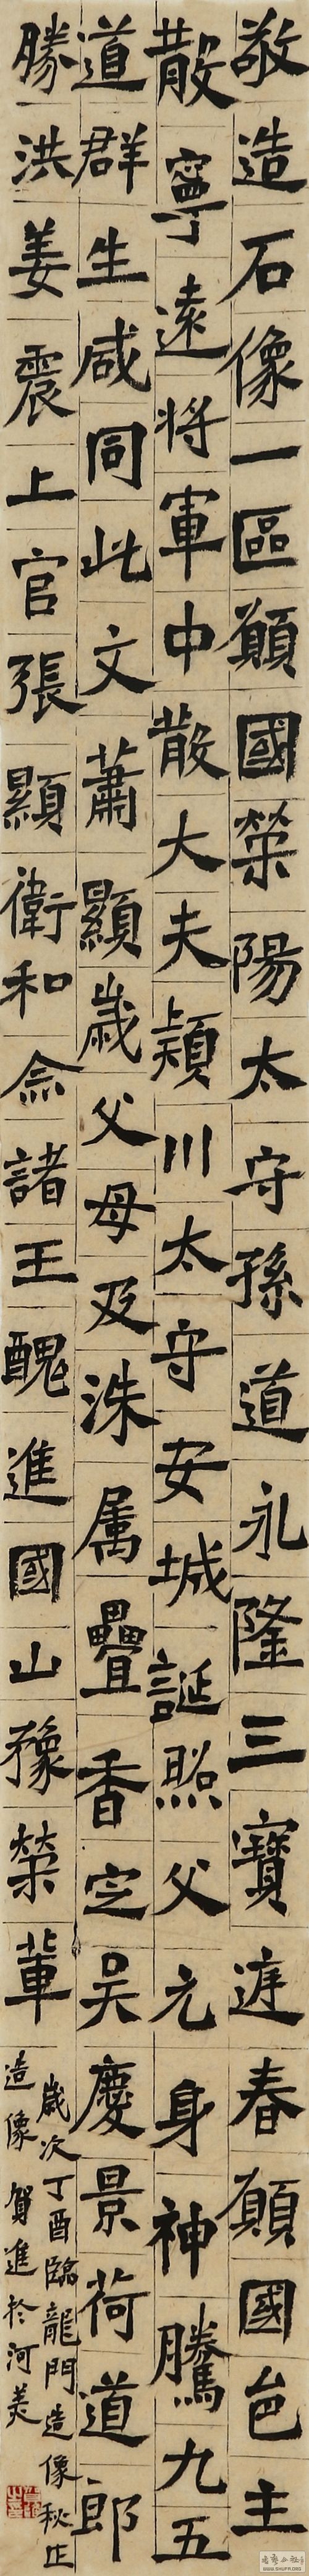 敬造石像一區願國榮陽太守孫道永隆三寶迋春願國邑主
散寧遠將軍中散大夫潁川太守安城誕照父元身神騰九五
道群生咸同此文蕭顯歲父母及洙属疊香定吴慶景荷道郎
勝洪姜震上官張顯衛和念諸王醜進國山豫榮輩
歲次丁酉臨龍門造像秋止
造像賀進於河美